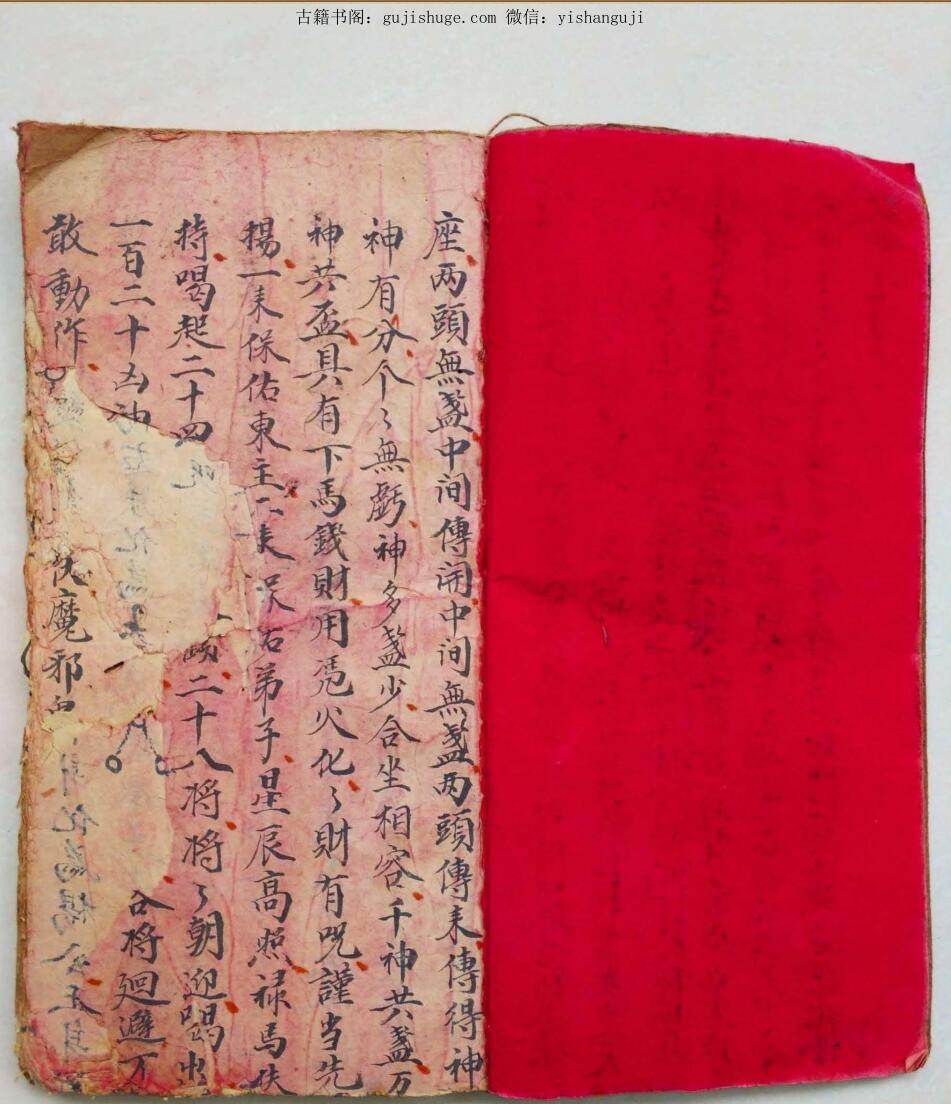 古籍书阁：gujishuge.com 微信：yishanguji
座两頭無盞中间傳闹中间無盞两頭傳耒傳得神
神有分个〻無虧神多盞少合坐相容千神共盞万
神共盃具有下馬錢財用凭火化〻財有咒謹当先
揚一耒保佑東主二耒保佑弟子星辰高照禄馬扶
持喝起二十四二十八将将〻朝迎喝出
一百二十凶神合将廻避不
敢動作伏魔邪